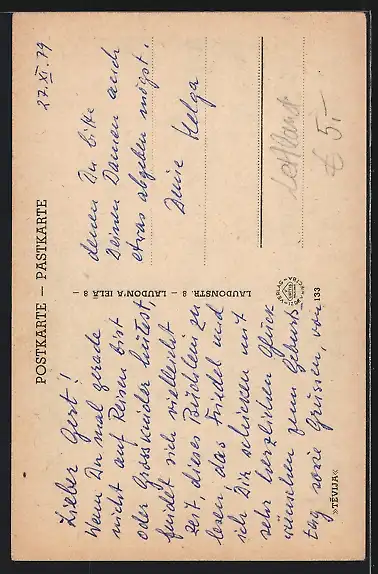 POSTKARTE — PASTKARTE
27. XI. 79
Lieber Gert!
Wenn Du mal gerade
nicht auf Reisen bist
oder Grosskinder hütest,
findet sich vielleicht
zeit, dieses Büchlein zu
lesen das Friedel und
ich Dir schicken mit
sehr herzlichen Glück
wünschen zum Geburts
tag sowie Grüssen, von
denen Du bitte
Deinen Damen auch
etwas abgeben mögst.
Deine Helga
LAUDONSTR. 8 — LAUDON'A IELĀ 8 —
Lettland
€ 5,-
133
»TĒVIJA«